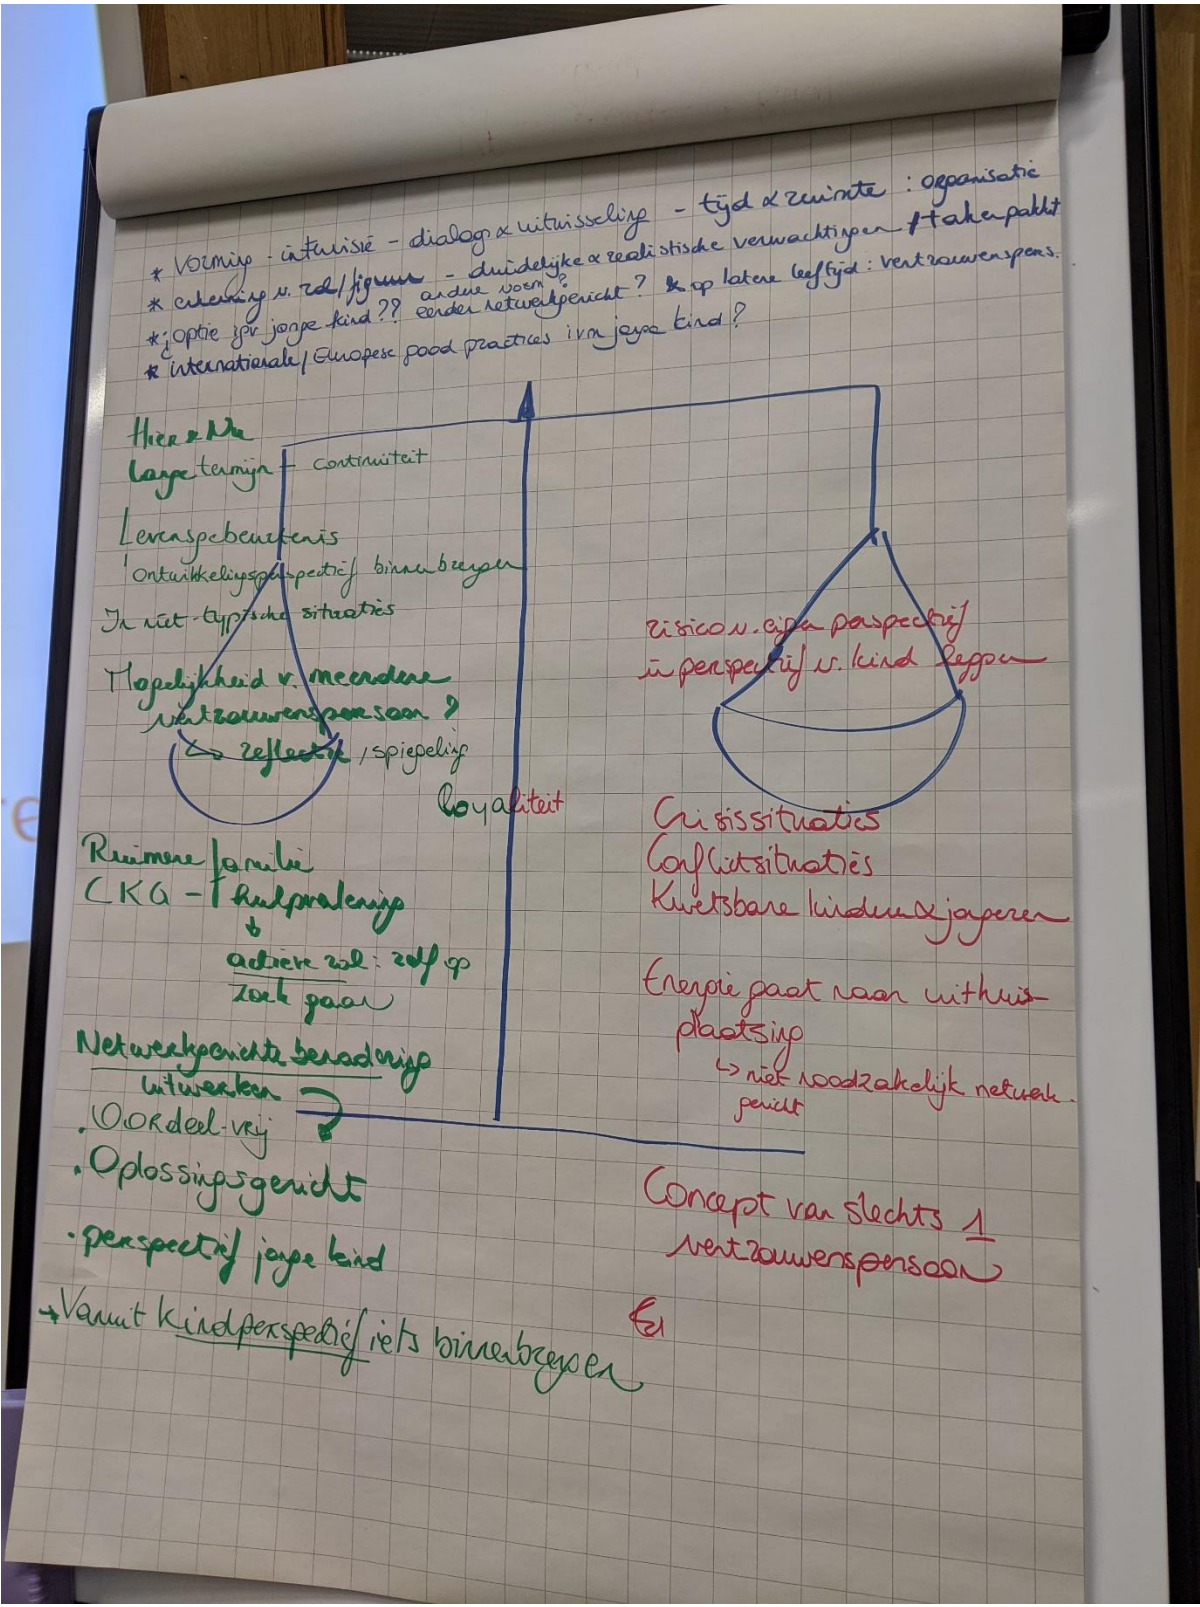 * Vorming - intervisie - dialoog & uitwisseling - tijd & ruimte : organisatie
* erkenning v. rol/figuur - duidelijke & realistische verwachtingen / takenpakket
andere vorm?
* ¿ optie ipv jonge kind?? eerder netwerkgericht? & op latere leeftijd: vertrouwenspers.
* internationale/Europese good practices ivm jonge kind?
Hier & Nu
Lange termijn - continuiteit
Levensgebeurtenis
ontwikkelingsperspectief binnenbrengen
In niet-typische situaties
Mogelijkheid v. meerdere
vertrouwenspersoon?
↳ reflectie / spiegeling
risico v. eigen perspectief
in perspectief v. kind leggen
Loyaliteit
Ruimere familie
CKG - hulpverlening
↓
actieve rol: zelf op
zoek gaan
Netwerkgerichte benadering
uitwerken
. Oordeel-vrij
. Oplossingsgericht
. perspectief jonge kind
→ Vanuit kindperspectief iets binnenbrengen
Crisissituaties
Conflictsituaties
Kwetsbare kinderen & jongeren
Energie gaat naar uithuis-
plaatsing
↳ niet noodzakelijk netwerk-
gericht
Concept van slechts 1
vertrouwenspersoon